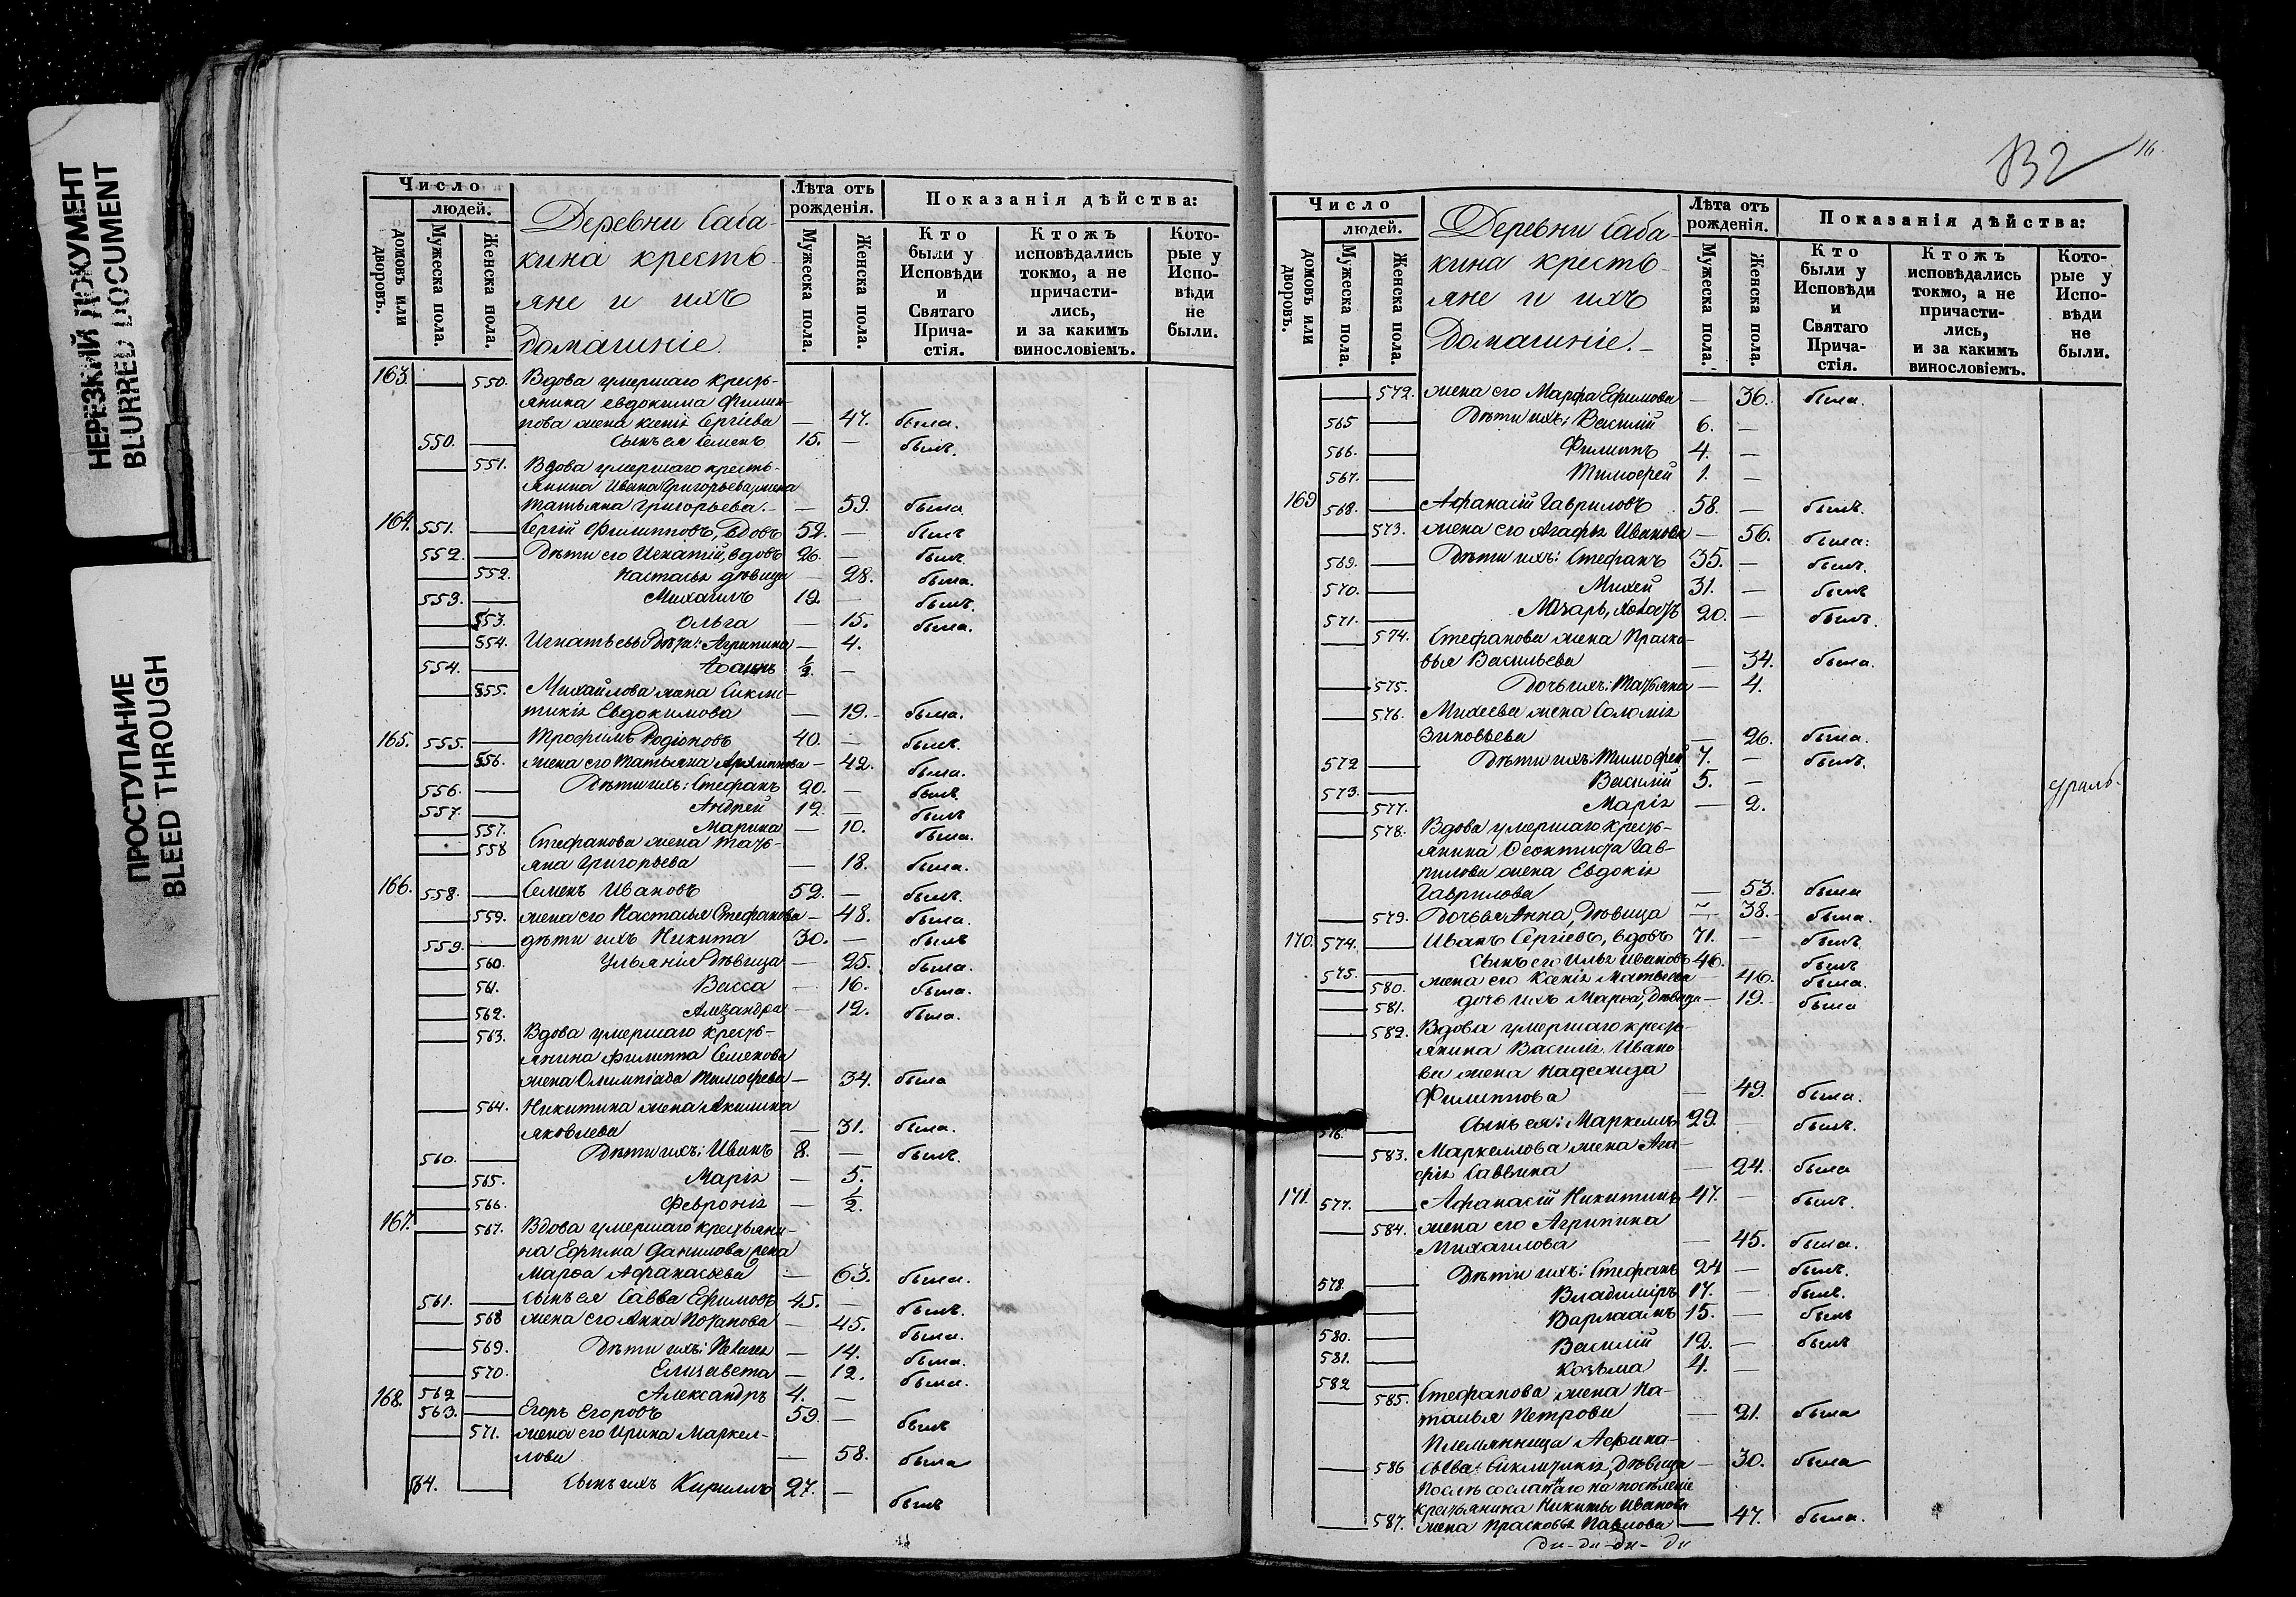 НЕРЕЗКИЙ ДОКУМЕНТ
BLURRED DOCUMENT
ПРОСТУПАНИЕ
BLEED THROUGH
Число
людей.
домовъ или дворовъ.
Мужеска пола.
Женска пола.
Деревни Саба-
кина кресть-
яне и ихъ
домашніе.
Лѣта отъ рожденія.
Мужеска пола.
Женска пола.
Показанія дѣйства:
Кто были у Исповѣди и Святаго Прича-стія.
Ктожъ исповѣдались токмо, а не причасти-лись, и за какимъ винословіемъ.
Кото-рые у Испо-вѣди не были.
163. — 550. Вдова умершаго кресть-
янина Евдокима Филип-
пова жена Ксенія Сергіева — 47. была.
550. — сынъ ея Семенъ 15. — былъ.
— 551. Вдова умершаго кресть-
янина Ивана Григорьева жена
Татьяна Григорьева. — 59. была
164. 551. — Сергій Филипповъ, вдовъ 52. — былъ
552. — Дѣти его Игнатій, вдовъ 26. — былъ
— 552. Настасья дѣвица — 28. была.
553. — Михаилъ 19 — былъ.
— 553. Ольга — 15. была.
— 554. Игнатьевы дѣти: Агрипина — 4.
554. — Іоаннъ ½. —
— 555. Михайлова жена Синкли-
тикія Евдокимова — 19. была.
165. 555. — Трофимъ Родіоновъ 40. — былъ.
— 556. жена его Татьяна Архипова — 42. была.
556. — Дѣти ихъ: Стефанъ 20. — былъ.
557. — Андрей 12. — былъ
— 557. Марина — 10. была.
— 558 Стефанова жена Тать-
яна Григорьева — 18. была.
166. 558. — Семенъ Ивановъ 52. — былъ.
— 559. жена его Настасья Стефанова — 48. была.
559. — дѣти ихъ Никита 30. — былъ
— 560. Ульянія дѣвица — 25. была.
— 561. Васса — 16. была.
— 562. Александра — 12. была.
— 563. Вдова умершаго кресть-
янина Филиппа Семенова
жена Олимпіада Тимофеева — 34. была
— 564. Никитина жена Акилина
Яковлева — 31. была.
560. — Дѣти ихъ: Иванъ 8. — былъ.
— 565. Марія — 5.
— 566. Февронія — ½.
167. — 567. Вдова умершаго крестьяни-
на Ефима Данилова жена
Марѳа Афанасьева — 63. была.
561. — сынъ ея Савва Ефимовъ 45. — былъ.
— 568 жена его Анна Потапова — 45. была.
— 569. Дѣти ихъ: Пелагея — 14. была.
— 570. Елизавета — 12. была.
562 — Александръ 4. —
168. 563. — Егоръ Егоровъ 59. — былъ
— 571. жена его Ирина Маркел-
лова — 58. была
564. — сынъ ихъ Кириллъ 27. — былъ
132
Число
людей.
домовъ или дворовъ.
Мужеска пола.
Женска пола.
Деревни Саба-
кина кресть-
яне и ихъ
Домашніе.
Лѣта отъ рожденія.
Мужеска пола.
Женска пола.
Показанія дѣйства:
Кто были у Исповѣди и Святаго Прича-стія.
Ктожъ исповѣдались токмо, а не причасти-лись, и за какимъ винословіемъ.
Кото-рые у Испо-вѣди не были.
— 572. жена его Марфа Ефимова — 36. была.
565 — Дѣти ихъ: Василій 6. —
566. — Филипъ 4. —
567. — Тимофей 1. —
169 568. — Афанасій Гавриловъ 58. — былъ.
— 573. жена его Агафья Иванова — 56. была.
569. — Дѣти ихъ: Стефанъ 35. — былъ.
570. — Михей 31. — былъ
571. — Лазарь, холостъ 20. — былъ.
— 574. Стефанова жена Праско-
вья Васильева — 34. была.
— 575. Дочь ихъ: Татьяна — 4.
— 576. Михеева жена Соломія
Зиновьева — 26. была.
572 — Дѣти ихъ: Тимофей 7. — былъ.
573. — Василій 5. —
— 577. Марія — 2.
— 578. Вдова умершаго кресть-
янина Ѳеоктиста Гав-
рилова жена Евдокія
Гаврилова — 53. была
— 579. Дочь ея Анна, дѣвица — 38. была.
170. 574. — Иванъ Сергіевъ, вдовъ 71. — былъ.
575. — сынъ его Илья Ивановъ 46. — былъ
— 580. жена его Ксенія Матвѣева — 46. была.
— 581. дочь ихъ Марѳа, дѣвица — 19. была
— 582. Вдова умершаго кресть-
янина Василія Ивано-
ва жена Надежда
Филиппова — 49. была.
576. — сынъ ея: Маркеллъ 29. — былъ.
— 583. Маркеллова жена Ага-
фія Саввина — 24. была
171. 577. — Афанасій Никитинъ 47. — былъ.
— 584. жена его Агрипина
Михаилова — 45. была.
578. — Дѣти ихъ: Стефанъ 24 — былъ.
Владиміръ 17. — былъ.
580. — Варлаамъ 15. — былъ
581. — Василій 12. — былъ
582 — Козьма 4. —
— 585. Стефанова жена На-
талья Петрова — 21. была
Племянница Афана-
— 586 сьева: Синклитикія, дѣвица — 30. была
Послѣ сосланнаго на поселеніе
крестьянина Никиты Иванова
— 587. жена Прасковья Павлова — 47. была.